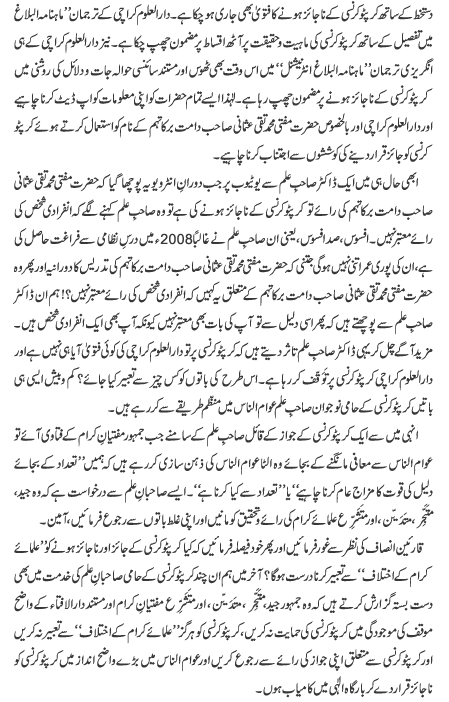 دستخط کے ساتھ کرپٹو کرنسی کے ناجائز ہونے کا فتویٰ بھی جاری ہو چکا ہے۔ دارالعلوم کراچی کے ترجمان ”ماہنامہ البلاغ“
میں تفصیل کے ساتھ کرپٹو کرنسی کی ماہیت و حقیقت پر آٹھ اقساط پر مضمون چھپ چکا ہے۔ نیز دارالعلوم کراچی کے ہی
انگریزی ترجمان ”ماہنامہ البلاغ انٹرنیشنل“ میں اس وقت بھی ٹھوس اور مستند سائنسی حوالہ جات و دلائل کی روشنی میں
کرپٹو کرنسی کے ناجائز ہونے پر مضمون چھپ رہا ہے۔ لہٰذا ایسے تمام حضرات کو اپنی معلومات کو اپ ڈیٹ کرنا چاہیے
اور دارالعلوم کراچی اور بالخصوص حضرت مفتی محمد تقی عثمانی صاحب دامت برکاتہم کے نام کو استعمال کرتے ہوئے کرپٹو
کرنسی کو جائز قرار دینے کی کوششوں سے اجتناب کرنا چاہیے۔
ابھی حال ہی میں ایک ڈاکٹر صاحبِ علم سے یوٹیوب پر جب دورانِ انٹرویو یہ پوچھا گیا کہ حضرت مفتی محمد تقی عثمانی
صاحب دامت برکاتہم کی رائے تو کرپٹو کرنسی کے ناجائز ہونے کی ہے تو وہ صاحبِ علم کہنے لگے کہ انفرادی شخص کی
رائے معتبر نہیں۔ افسوس، صد افسوس، یعنی ان صاحبِ علم نے غالباً 2008ء میں درسِ نظامی سے فراغت حاصل کی
ہے، ان کی پوری عمر اتنی نہیں ہوگی جتنی کہ حضرت مفتی محمد تقی عثمانی صاحب دامت برکاتہم کی تدریس کا دورانیہ اور پھر وہ
حضرت مفتی محمد تقی عثمانی صاحب دامت برکاتہم کے متعلق یہ کہیں کہ انفرادی شخص کی رائے معتبر نہیں؟! ہم ان ڈاکٹر
صاحب سے پوچھتے ہیں کہ پھر اسی دلیل سے تو آپ کی بات بھی معتبر نہیں کیونکہ آپ بھی ایک انفرادی شخص ہیں۔
مزید آگے چل کر یہی ڈاکٹر صاحبِ علم تاثر دیتے ہیں کہ کرپٹو کرنسی پر تو دارالعلوم کراچی کی کوئی فتویٰ آیا ہی نہیں ہے اور
دارالعلوم کراچی کرپٹو کرنسی پر توقف کر رہا ہے۔ اس طرح کی باتوں کو کس چیز سے تعبیر کیا جائے؟ کم و بیش ایسی ہی
باتیں کرپٹو کرنسی کے حامی نوجوان صاحبِ علم عوام الناس میں منظم طریقے سے کر رہے ہیں۔
انہی میں سے ایک کرپٹو کرنسی کے جواز کے قائل صاحبِ علم کے سامنے جب جمہور مفتیانِ کرام کے فتاوی آئے تو
عوام الناس سے معافی مانگنے کے بجائے وہ الٹا عوام الناس کی ذہن سازی کر رہے ہیں کہ ہمیں ”تعداد کے بجائے
دلیل کی قوت کا مزاج عام کرنا چاہیے“ یا ”تعداد سے کیا کرنا ہے“۔ ایسے صاحبانِ علم سے درخواست ہے کہ وہ جید،
متبحّر، متدیّن، اور متشرّع علمائے کرام کی رائے و تحقیق کو مانیں اور اپنی غلط باتوں سے رجوع فرمائیں، آمین۔
قارئین انصاف کی نظر سے غور فرمائیں اور پھر خود فیصلہ فرمائیں کہ کیا کرپٹو کرنسی کے جائز اور ناجائز ہونے کو ”علمائے
کرام کے اختلاف“ سے تعبیر کرنا درست ہوگا؟ آخر میں ہم ان چند کرپٹو کرنسی کے حامی صاحبانِ علم کی خدمت میں بھی
دست بستہ گزارش کرتے ہیں کہ وہ جمہور جید، متبحّر، متدیّن، اور متشرّع مفتیانِ کرام اور مستند دارالافتاء کے واضح
موقف کی موجودگی میں کرپٹو کرنسی کی حمایت نہ کریں، کرپٹو کرنسی کو ہرگز ”علمائے کرام کے اختلاف“ سے تعبیر نہ کریں
اور کرپٹو کرنسی سے متعلق اپنی جواز کی رائے سے رجوع کریں اور عوام الناس میں بڑے واضح انداز میں کرپٹو کرنسی کو
ناجائز قرار دے کر بارگاہِ الٰہی میں کامیاب ہوں۔